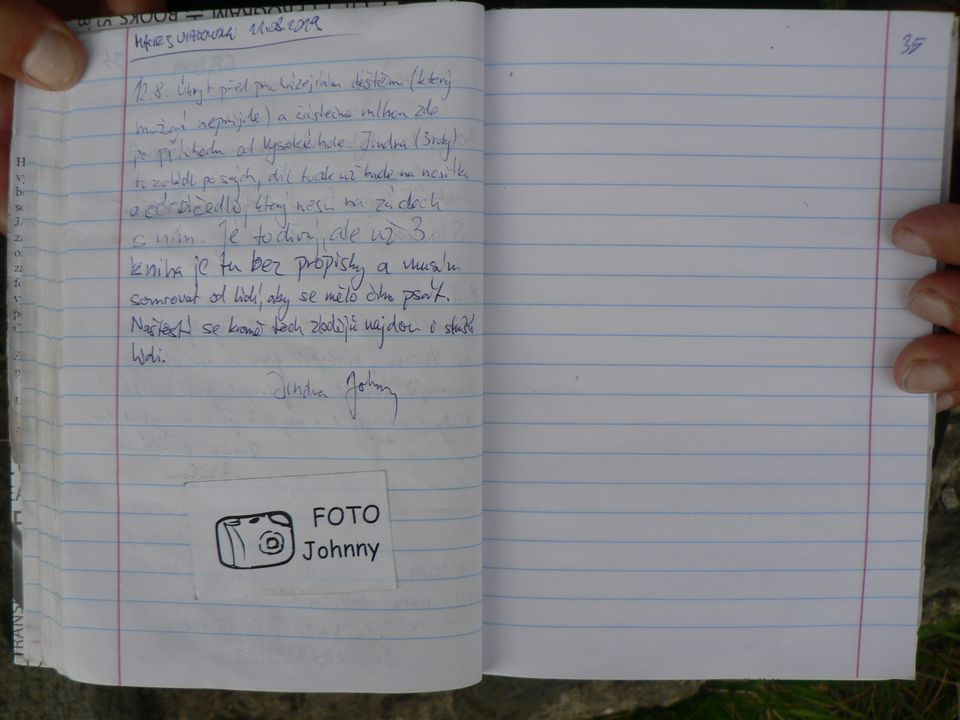 11.08.2019
12.8. Úkryt před přicházejícím deštěm (který
možná nepřijde) a částečně mlhou zde
po příchodu od Vysoké hole. Jindra (3 roky)
to zvládl po svých, dál tudle už bude na nosítka
a odrážedlo, který nesu na zádech
s ním. Je to divný, ale už 3.
kniha je tu bez propisky a musím
somrovat od lidí, aby se mělo čím psát.
Naštěstí se kromě těch zlodějů najdou i slušní
lidi.
Jindra Johnny
FOTO
Johnny
35